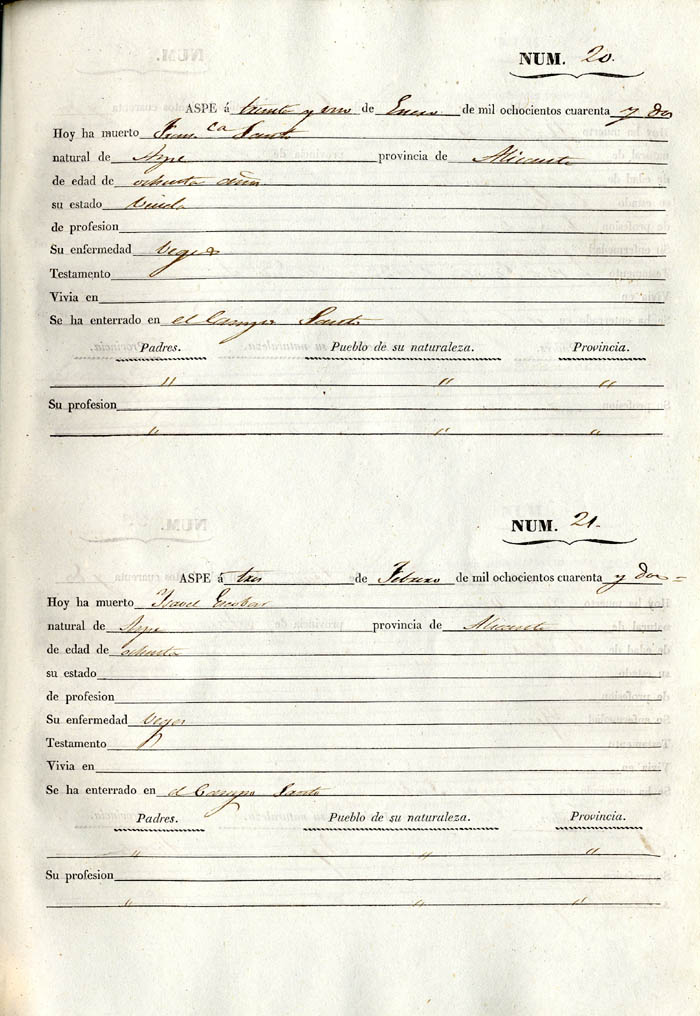 NUM. 20.
ASPE á treinta y uno de Enero de mil ochocientos cuarenta y dos
Hoy ha muerto Fran.ca
natural de Aspe provincia de Alicante
de edad de ochenta años
su estado Viuda
de profesion
Su enfermedad Vegez
Testamento
Vivia en
Se ha enterrado en el Campo Santo
Padres. Pueblo de su naturaleza. Provincia.
" " "
Su profesion
" " "
NUM. 21.
ASPE á tres de Febrero de mil ochocientos cuarenta y dos =
Hoy ha muerto Ysavel Escobar
natural de Aspe provincia de Alicante
de edad de ochenta
su estado
de profesion
Su enfermedad Vegez
Testamento
Vivia en
Se ha enterrado en el Campo Santo
Padres. Pueblo de su naturaleza. Provincia.
" " "
Su profesion
" " "